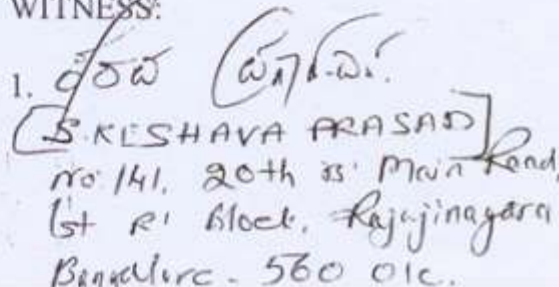 WITNESS:
1.
[S. KESHAVA PRASAD]
No 141, 20th Main Road,
1st Block, Rajajinagara
Bangalore - 560 010.